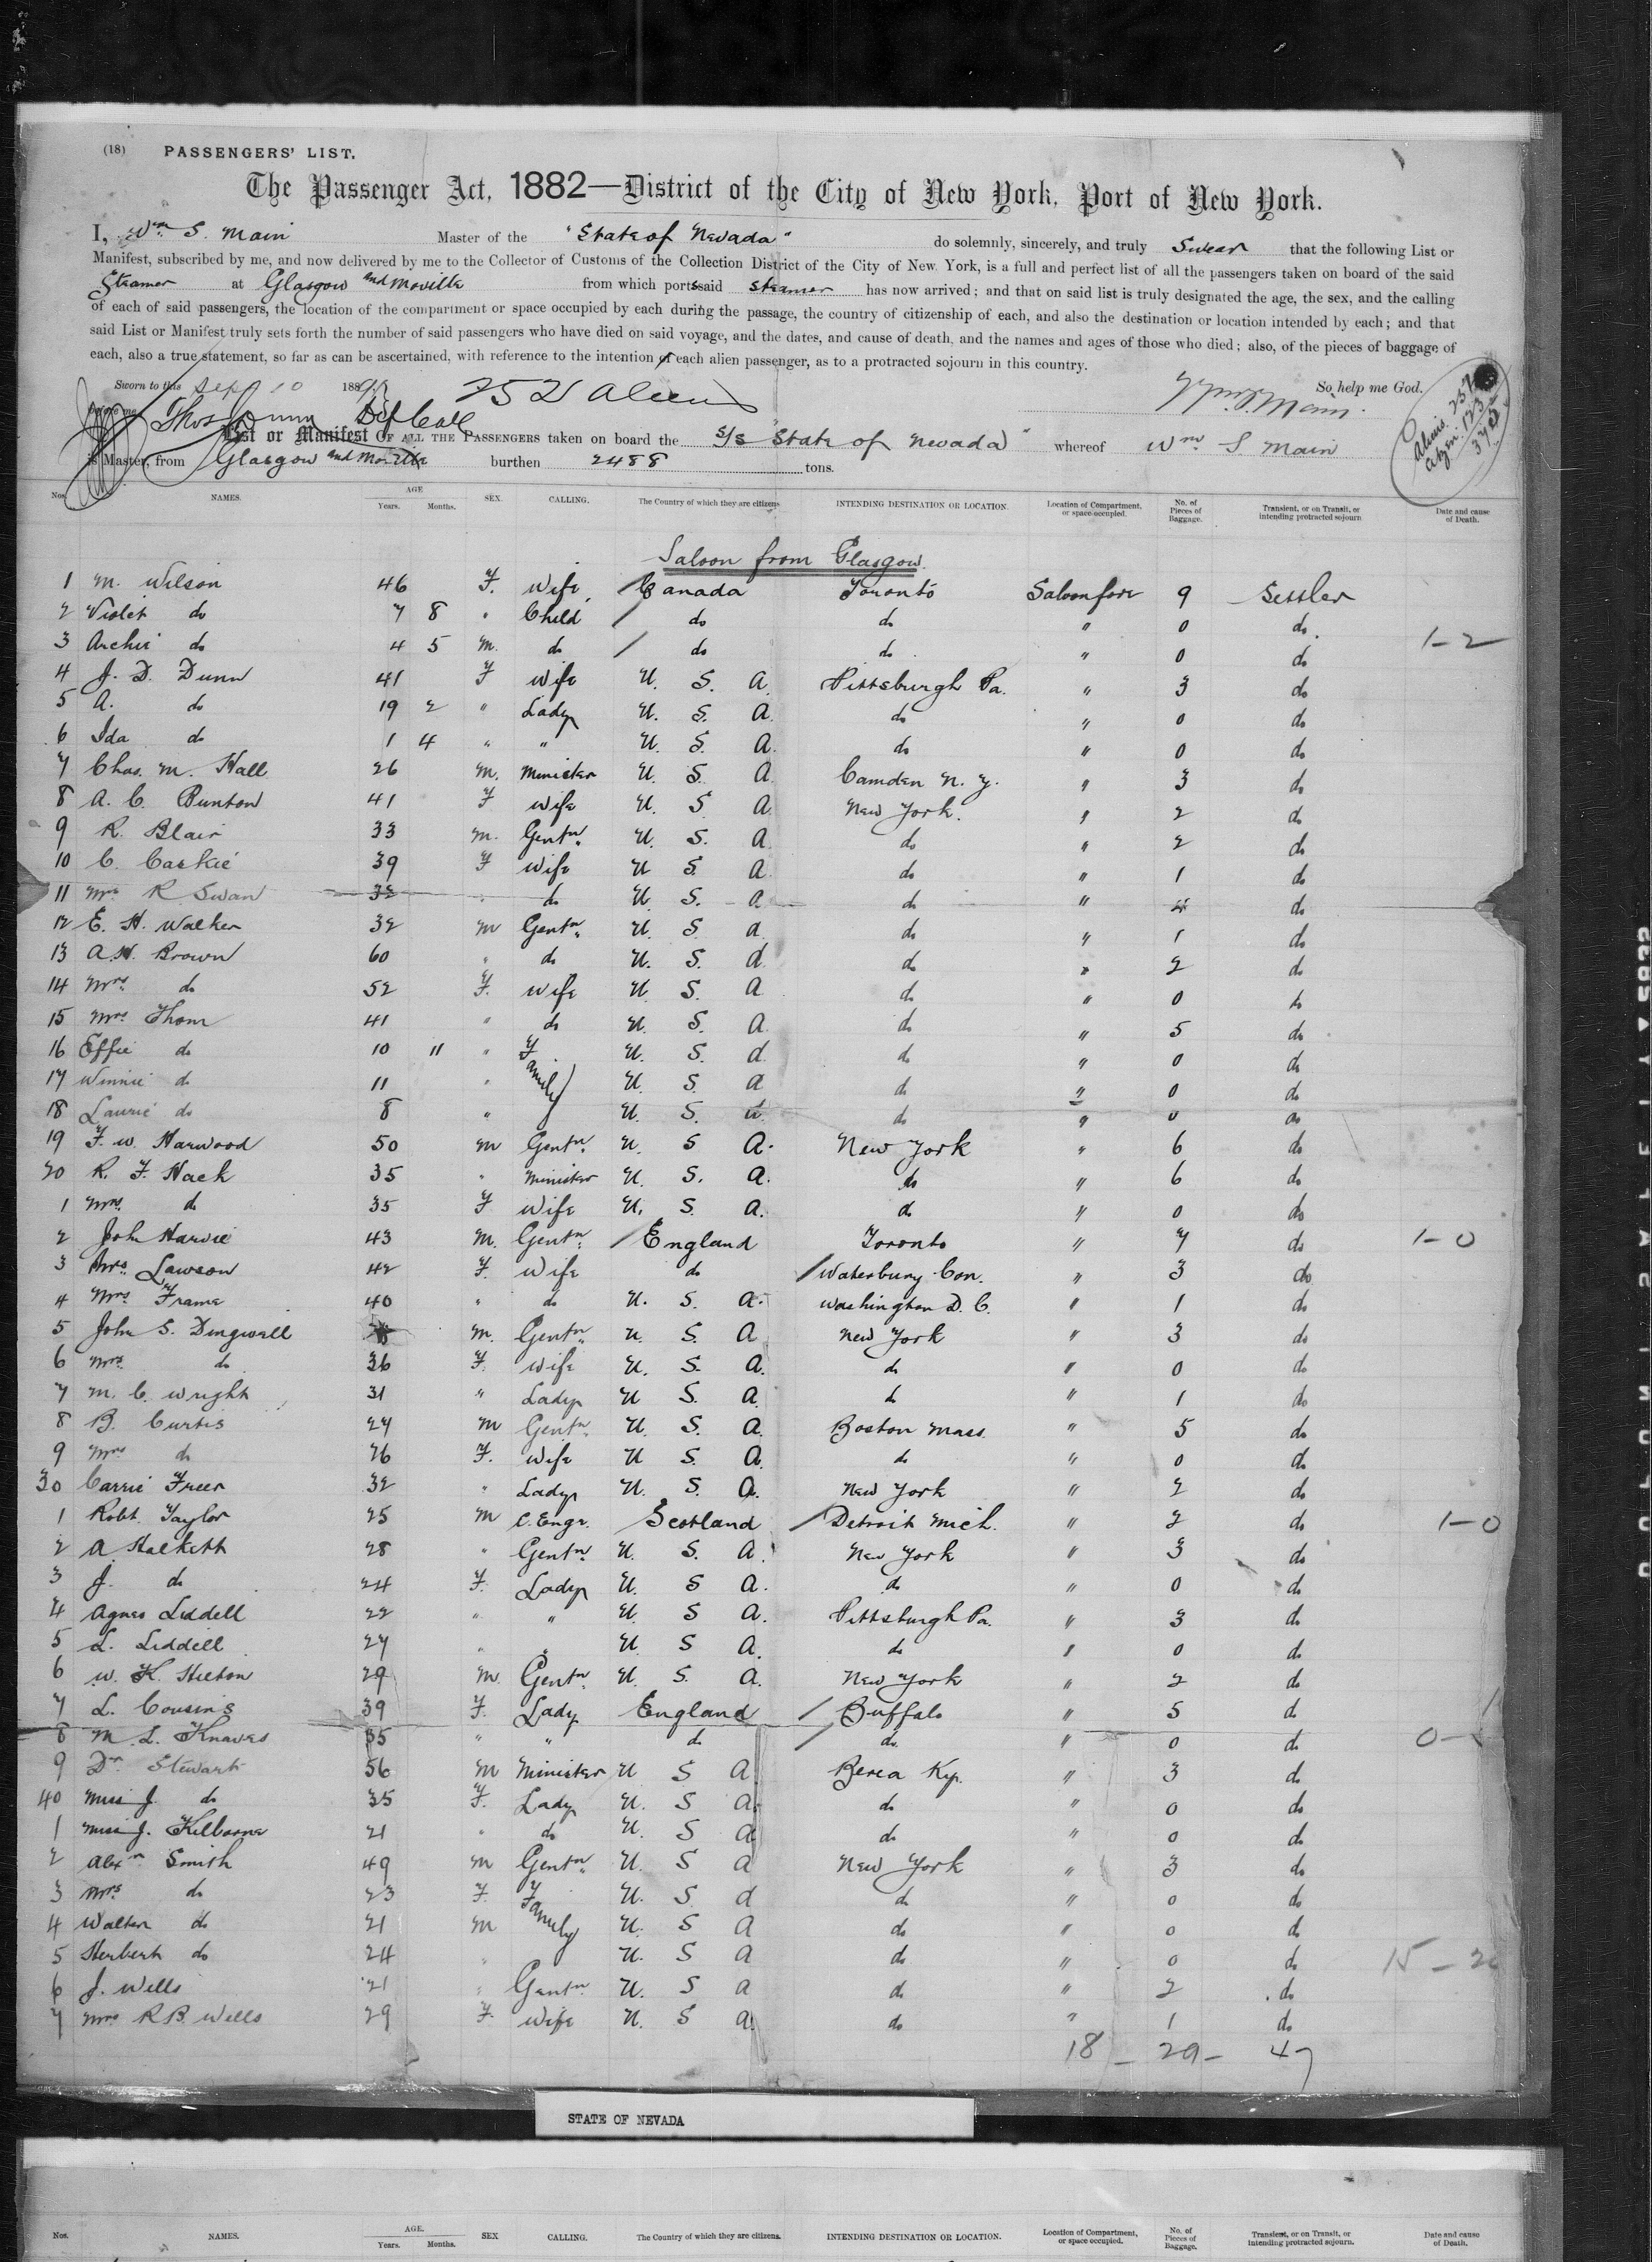 (18) PASSENGERS' LIST.
The Passenger Act, 1882—District of the City of New York, Port of New York.
I, Wm S. Main Master of the "State of Nevada" do solemnly, sincerely, and truly Swear that the following List or
Manifest, subscribed by me, and now delivered by me to the Collector of Customs of the Collection District of the City of New York, is a full and perfect list of all the passengers taken on board of the said
Steamer at Glasgow and Moville from which ports said steamer has now arrived; and that on said list is truly designated the age, the sex, and the calling
of each of said passengers, the location of the compartment or space occupied by each during the passage, the country of citizenship of each, and also the destination or location intended by each; and that
said List or Manifest truly sets forth the number of said passengers who have died on said voyage, and the dates, and cause of death, and the names and ages of those who died; also, of the pieces of baggage of
each, also a true statement, so far as can be ascertained, with reference to the intention of each alien passenger, as to a protracted sojourn in this country.
Sworn to this Sept 10 189 252 Aliens So help me God.
before me Thos Dunn Dep Coll Wm S. Main
List or Manifest OF ALL THE PASSENGERS taken on board the S/S "State of Nevada" whereof Wm S Main
is Master, from Glasgow and Moville burthen 2488 tons.
Nos. NAMES. AGE Years. Months. SEX. CALLING. The Country of which they are citizens. INTENDING DESTINATION OR LOCATION. Location of Compartment, or space occupied. No. of Pieces of Baggage. Transient, or on Transit, or intending protracted sojourn Date and cause of Death.
Saloon from Glasgow
1 M. Wilson 46 F. Wife / Canada Toronto Saloon fore 9 Settler
2 Violet do 7 8 " Child / do do " 0 do
3 Archie do 4 5 M. do / do do " 0 do 1-2
4 J. D. Dunn 41 F Wife U. S. A. Pittsburgh Pa. " 3 do
5 A. do 19 2 " Lady U. S. A. do " 0 do
6 Ida do 1 4 " " U. S. A. do " 0 do
7 Chas. M. Hall 26 M. Minister U. S. A Camden N. J. " 3 do
8 A. C. Bunton 41 F Wife U. S. A New York. " 2 do
9 R. Blair 33 M. Gentn U. S. A do " 2 do
10 C. Caskie 39 F Wife U S. A do " 1 do
11 Mrs R Swan 32 " do U. S. A do " 4 do
12 E. H. Walker 32 M Gentn U. S A do " 1 do
13 A.H. Brown 60 " do U. S. A do " 2 do
14 Mrs do 52 F. Wife U S. A do " 0 do
15 Mrs Thom 41 " do U. S. A do " 5 do
16 Effie do 10 11 " Family U. S. A do " 0 do
17 Winnie do 11 " U. S. A do " 0 do
18 Laurie do 8 " U. S. A do " 0 do
19 F. W. Harwood 50 M Gentn U. S A. New York " 6 do
20 R. F. Hack 35 " Minister U. S. A. do " 6 do
1 Mrs. do 35 F Wife U. S. A. do " 0 do
2 John Harvie 43 M. Gentn / England Toronto " 7 do 1-0
3 Mrs. Lawson 42 F. Wife do / Waterbury Con. " 3 do
4 Mrs. Frame 40 " do U. S. A. Washington D. C. " 1 do
5 John S. Dingwall M. Gentn U. S. A New York " 3 do
6 Mrs. do 36 F. Wife U. S. A. do " 0 do
7 M. C. Wright 31 " Lady U S. A. do " 1 do
8 B. Curtis 27 M Gentn U. S. A. Boston Mass. " 5 do
9 Mrs do 26 F. Wife U S. A. do " 0 do
30 Carrie Freer 32 " Lady U. S. A. New York " 2 do
1 Robt. Taylor 25 M C. Engr. Scotland / Detroit Mich. " 2 do 1-0
2 A Halkett 28 " Gentn U. S. A. New York " 3 do
3 J. do 24 F. Lady U. S A. do " 0 do
4 Agnes Liddell 22 " " U. S A. Pittsburgh Pa. " 3 do
5 L. Liddell 27 " " U. S A. do " 0 do
6 W. K. Hilton 29 M Gentn U. S. A. New York " 2 do
7 L. Cousins 39 F. Lady England / Buffalo " 5 do
8 M. L. Knaves 35 " " do / do. " 0 do 0-
9 Dr. Stewart 56 M Minister U S A Berea Ky. " 3 do
40 Miss J. do 35 F. Lady U. S A. do " 0 do
1 Miss J. Kilborne 21 " do U. S A do " 0 do
2 Alexr Smith 49 M Gentn U. S A New York " 3 do
3 Mrs do 23 F. Family U. S A do " 0 do
4 Walter do 21 M U. S A do " 0 do
5 Herbert do 24 " U. S A do " 0 do
6 J. Wells 21 " Gentn U. S A do " 2 do
7 Mrs R B. Wells 29 F. Wife U. S A. do " 1 do
18 - 29 - 47
STATE OF NEVADA
Nos. NAMES. AGE. Years. Months. SEX CALLING. The Country of which they are citizens. INTENDING DESTINATION OR LOCATION. Location of Compartment, or space occupied. No. of Pieces of Baggage. Transient, or on Transit, or intending protracted sojourn. Date and cause of Death.